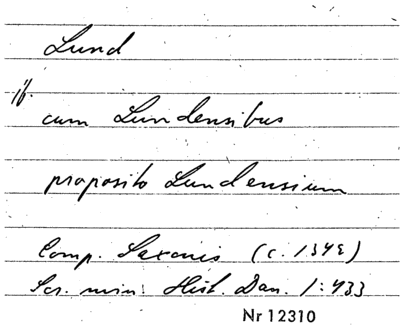 Lund
if.
cum Lundensibus
proposito Lundensium
Comp. Saxonis (c. 1342)
Scr. min. Hist. Dan. 1:433
Nr 12310